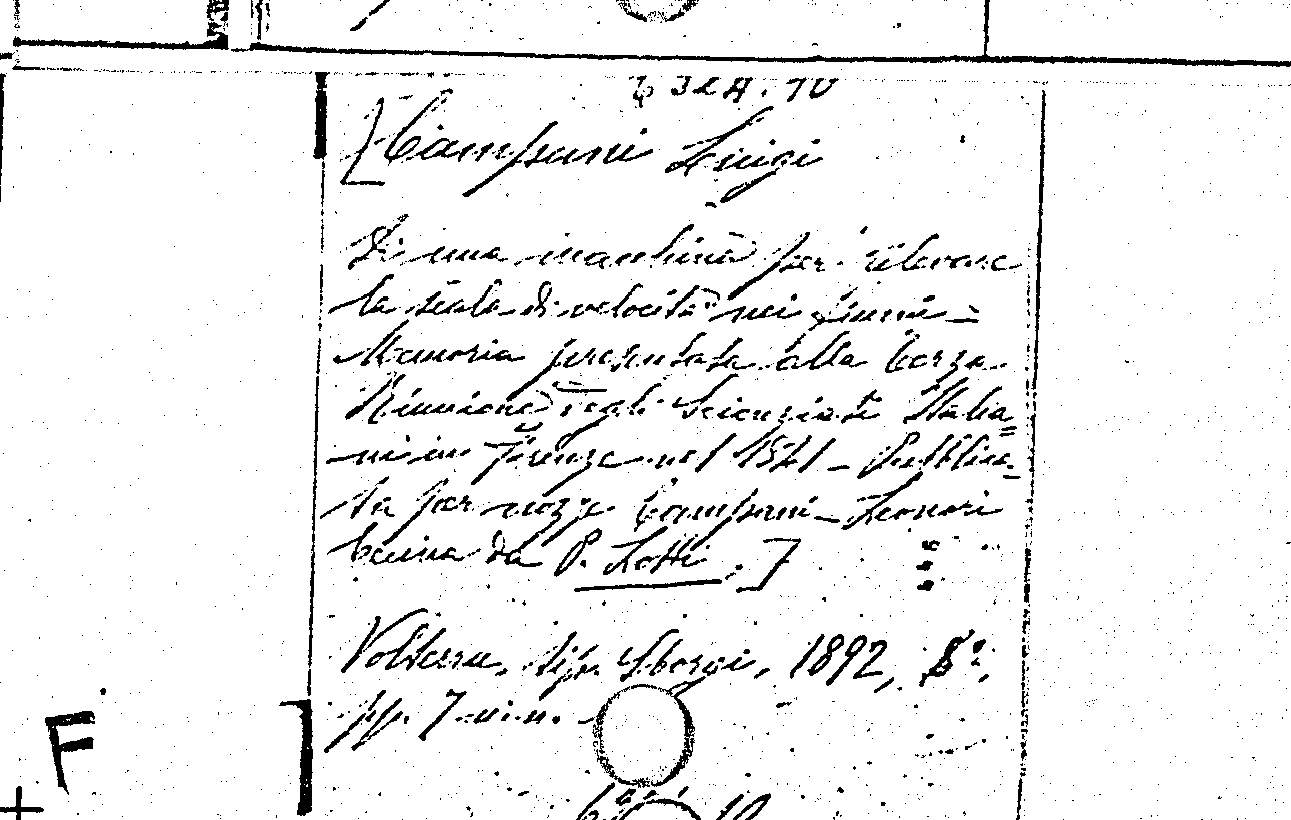 [Campani Luigi
Di una macchina per rilevare
la scala di velocità nei fiumi =
Memoria presentata alla terza
Riunione degli Scienziati Italia=
ni in Firenze nel 1841 - Pubblica=
ta per nozze Campani - Leonori
Cecina da P. Lotti.]
Volterra, tip. Sborgi, 1892, 8°,
pp. 7 - n. n. -
F